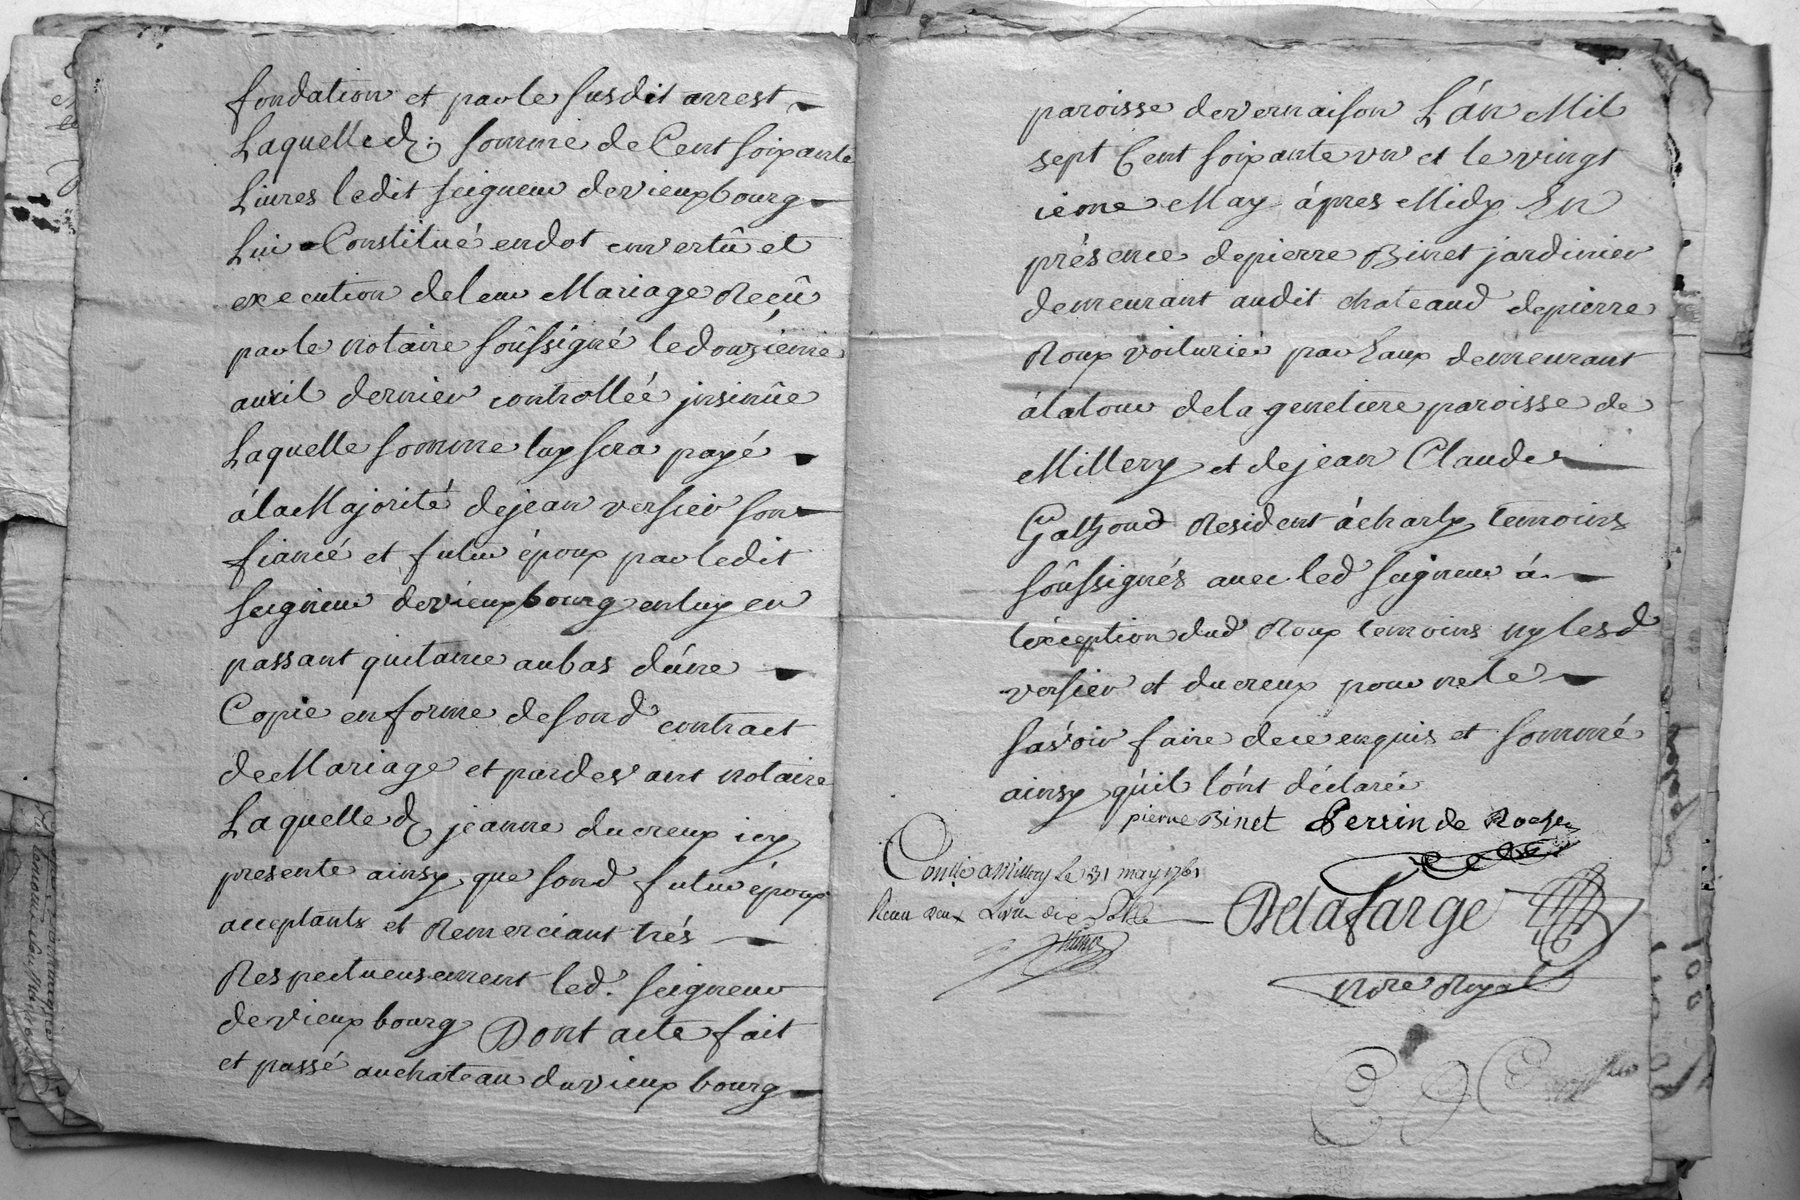 fondation et par le susdit arrest
Laquelle d. somme de Cent soixante
Livres ledit seigneur de vieuxbourg
Lui Constitué en dot en vertû et
execution de leur Mariage Reçû
par le notaire soûssigné le douzieme
avril dernier controllée jnsinûe
Laquelle somme luy sera payé
á la Majorité de jean versier son
fiancé et futur époux par ledit
seigneur de vieuxbourg en luy en
passant quitance au bas dúne
Copie en forme de sond contract
de Mariage et pardevant notaire
Laquelle d jeanne ducreux icy
presente ainsy que sond futur époux
acceptants et Remerciant trés
Respectueusement led. seigneur
de vieuxbourg Dont acte fait
et passé au chateau du vieux bourg
paroisse de vernaison L'án Mil
sept Cent soixante vn et le vingt
ieme May áprés Midy En
présence de pierre Binet jardinier
demeurant audit chateaud de pierre
Roux voiturier par Eaux demeurant
á la tour de la genetiere paroisse de
Millery et de jean Claude
Resident á charly temoins
soûssignés avec led seigneur á
léxception dud Roux temoins ny lesd
versier et ducreux pour ne lé
savóir faire de ce enquis et sommé
ainsy qúil lónt déclarée
pierre Binet Perrin de
Conllé a Millery le 31 may 1761
Delafarge
Nore Royal